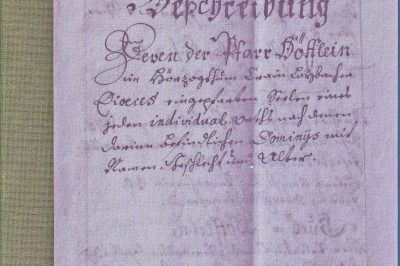 Beschreibung
Deren der Pfarr Höfflein
im Hörzogthum Crain Laybacher
Dioeces eingepfarten Seelen eines
jeden individual nach denen
darinn befündlichen Dominÿs mit
Namen, Geschlecht und Alter.